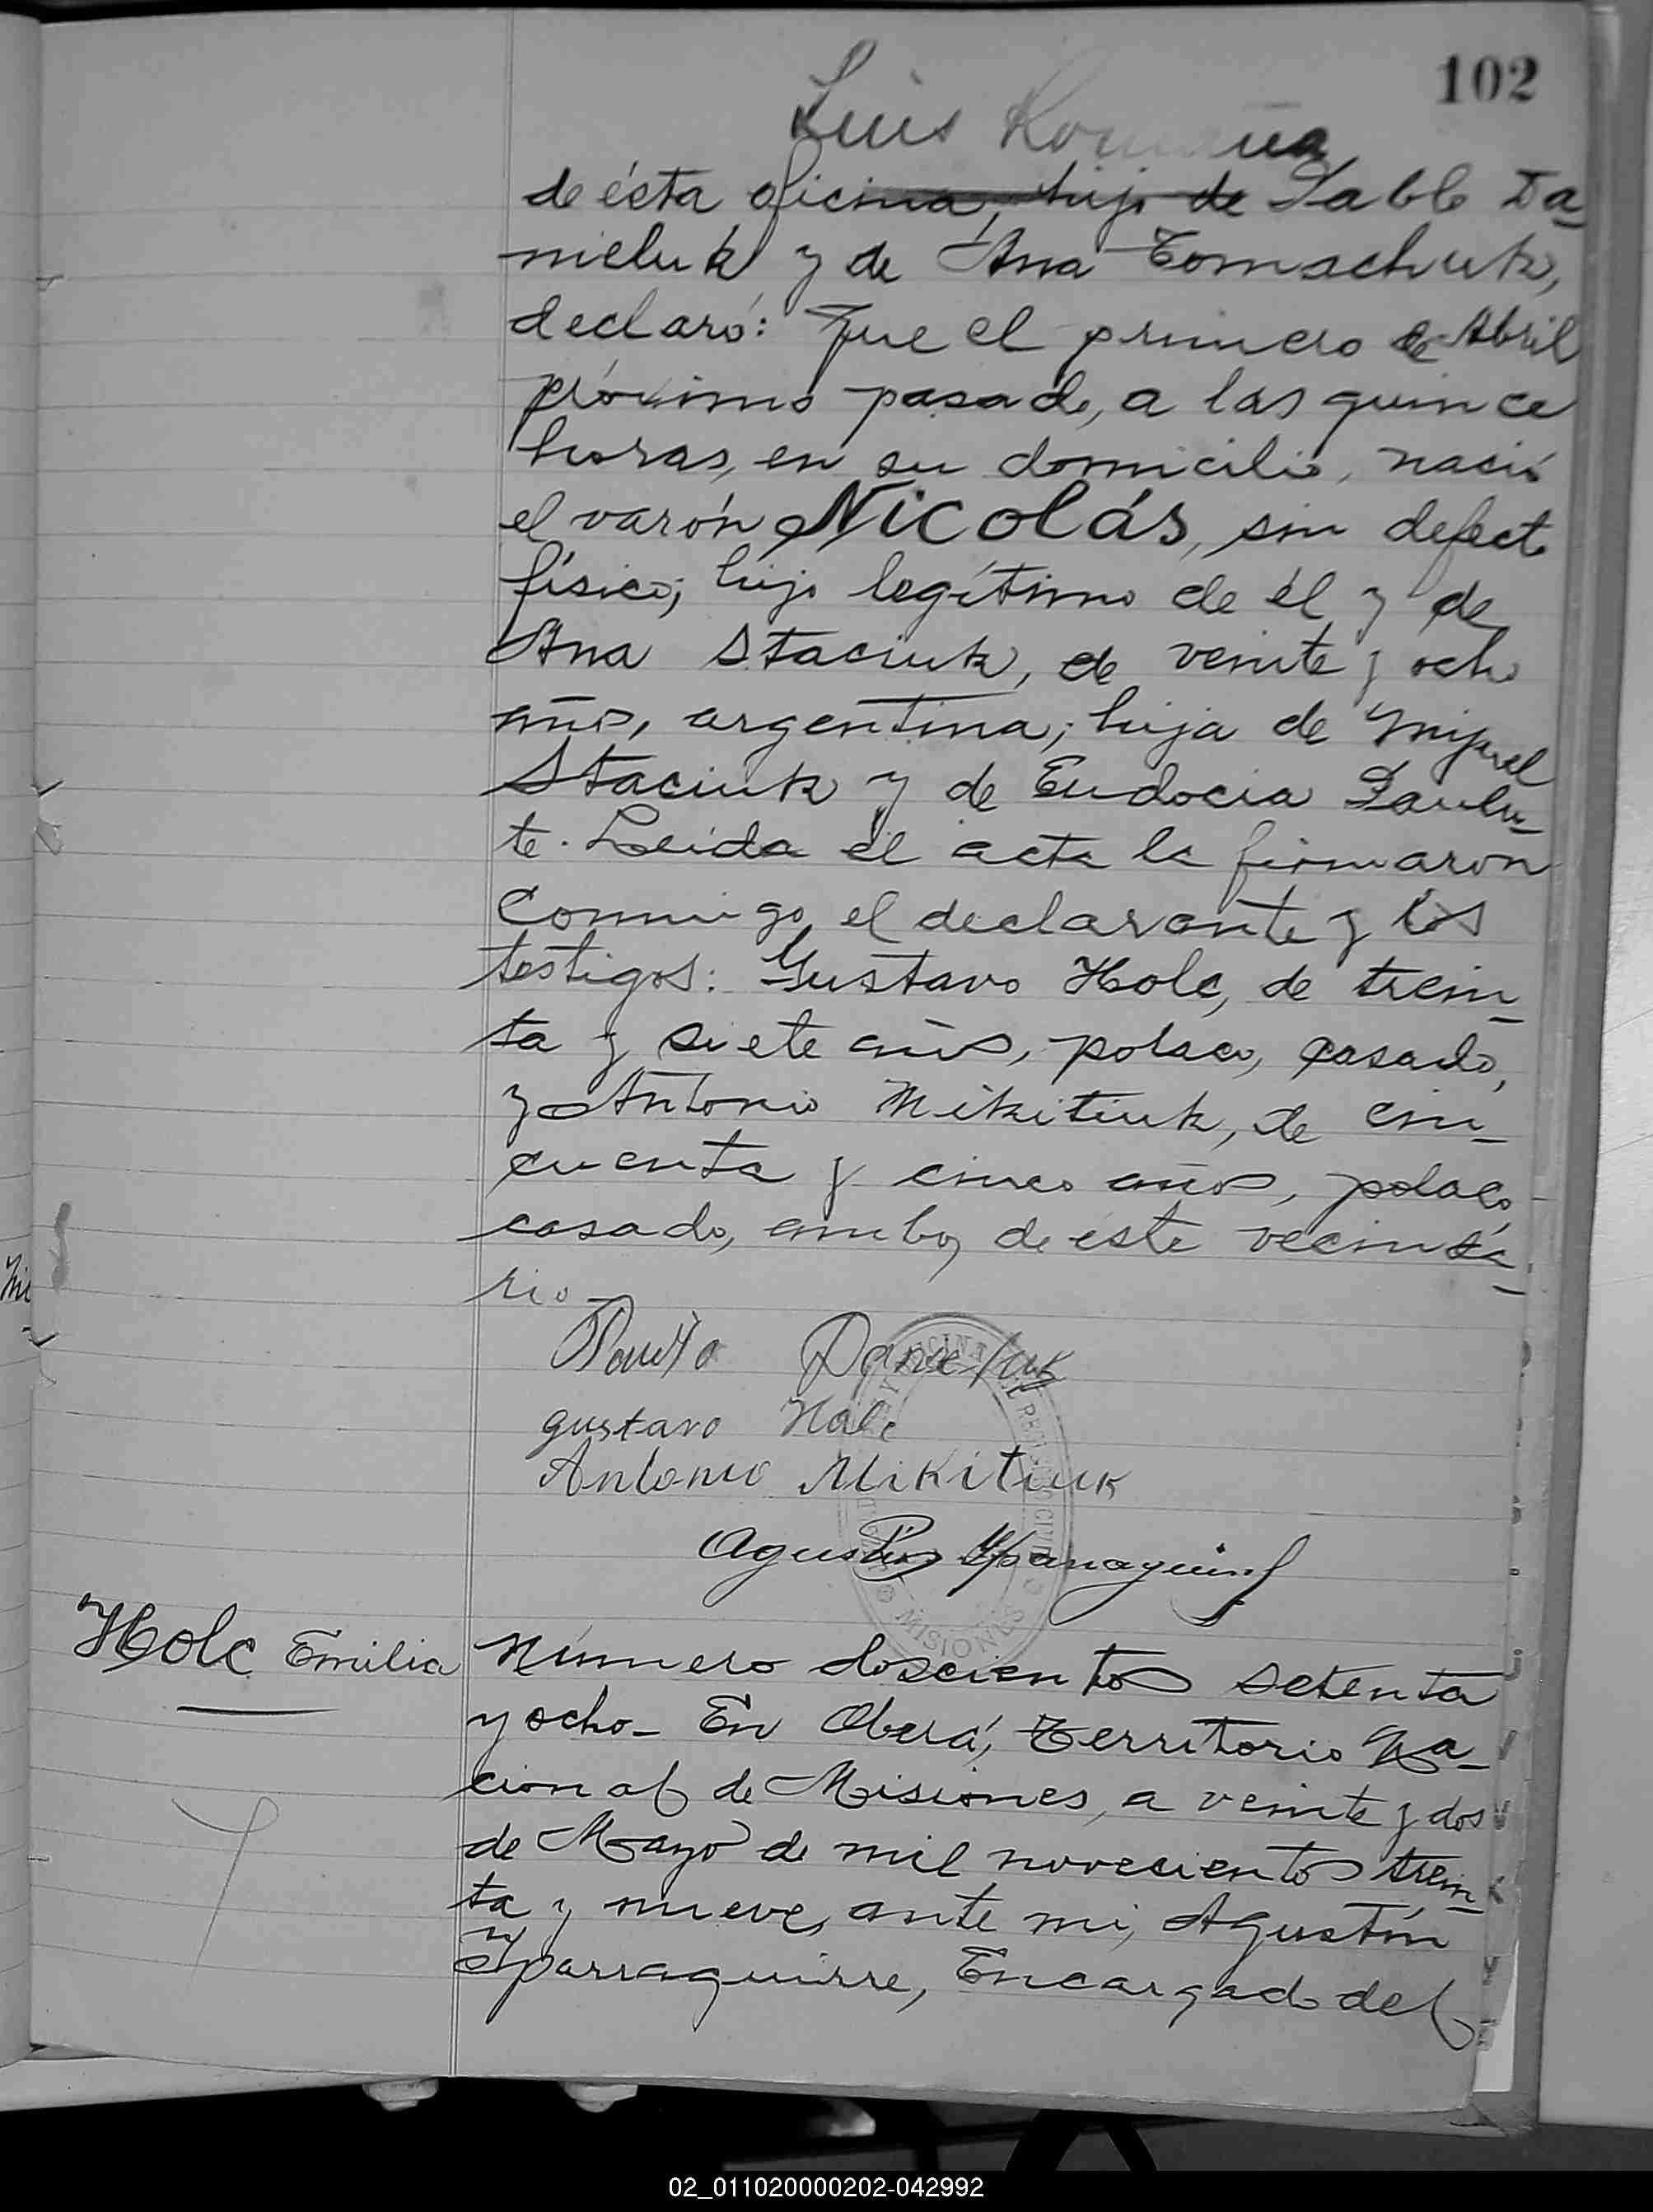 102
Luis
de ésta oficina, hijo de Pablo Da-
nieluk y de Ana Tomschuk,
declaró: Que el primero de Abril
próximo pasado, a las quince
horas, en su domicilio, nació
el varón Nicolás, sin defecto
físico; hijo legítimo de él y de
Ana Staciuk, de veinte y ocho
años, argentina; hija de Miguel
Staciuk y de Eudocia Paulu-
te. Leida el acta la firmaron
conmigo el declarante y los
testigos: Gustavo Holc, de trein-
ta y siete años, polaco, casado,
y Antonio Mikitiuk, de cin-
cuenta y cinco años, polaco,
casado, ambos de éste vecinda-
rio-
Danieluk
gustavo Holc
Antonio Mikitiuk
Agustín Yparraguirre
MISIONES
Holc Emilia
Número doscientos setenta
y ocho- En Oberá, Territorio Na-
cional de Misiones, a veinte y dos
de Mayo de mil novecientos trein-
ta y nueve, ante mi, Agustín
Yparraguirre, Encargado del
02_011020000202-042992